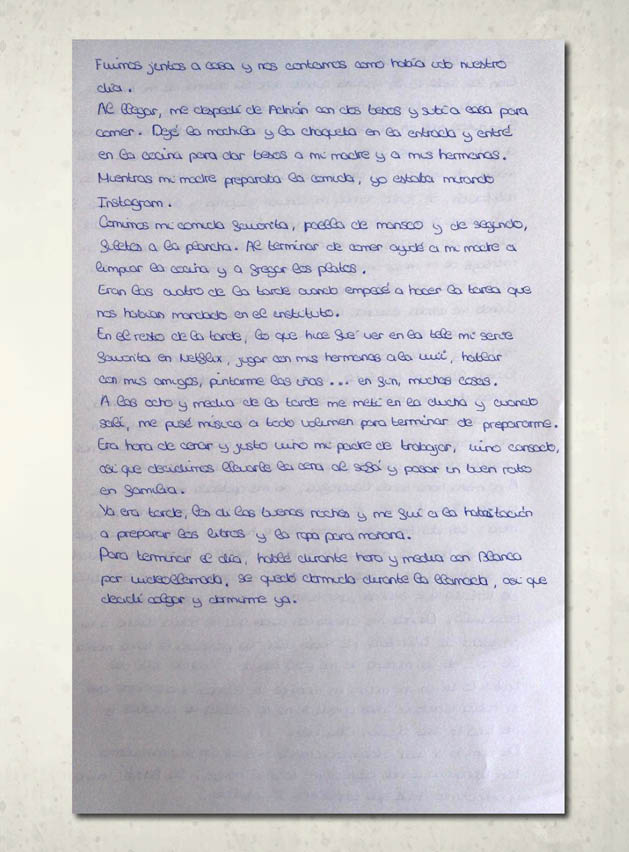 Fuimos juntos a casa y nos contamos como había ido nuestro
día.
Al llegar, me despedí de Adrián con dos besos y subí a casa para
comer. Dejé la mochila y la chaqueta en la entrada y entré
en la cocina para dar besos a mi madre y a mis hermanas.
Mientras mi madre preparaba la comida, yo estaba mirando
Instagram.
Comimos mi comida favorita, paella de marisco y de segundo,
filetes a la plancha. Al terminar de comer ayudé a mi madre a
limpiar la cocina y a fregar los platos.
Eran las cuatro de la tarde cuando empecé a hacer la tarea que
nos habían mandado en el instituto.
En el resto de la tarde, lo que hice fué ver en la tele mi serie
favorita en Netflix, jugar con mis hermanas a la wii, hablar
con mis amigos, pintarme las uñas ... en fin, muchas cosas.
A las ocho y media de la tarde me metí en la ducha y cuando
salí, me puse música a todo volumen para terminar de prepararme.
Era hora de cenar y justo vino mi padre de trabajar, vino cansado,
así que decidimos llevarle la cena al sofá y pasar un buen rato
en familia.
Ya era tarde, les di las buenas noches y me fui a la habitación
a preparar los libros y la ropa para mañana.
Para terminar el día, hablé durante hora y media con Blanca
por videollamada, se quedó dormida durante la llamada, así que
decidí colgar y dormirme ya.